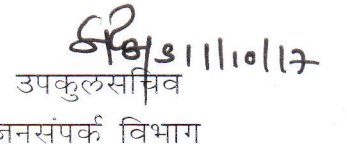 31/10/17
उपकुलसचिव
जनसंपर्क विभाग